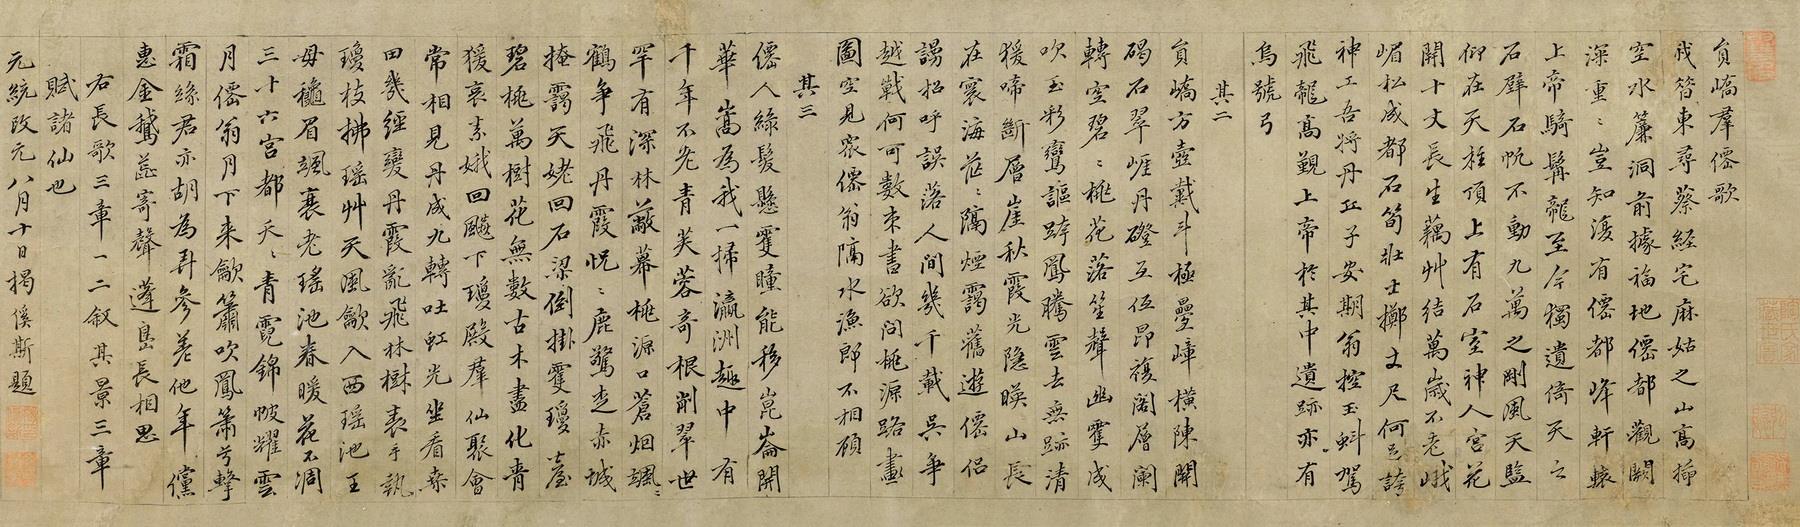 員嶠羣僊歌
我昝東尋蔡經宅麻姑之山高揷
空水簾洞前據福地僊都觀闕
深重〻豈知復有僊都峰軒轅
上帝騎髯龍至今獨遺倚天之
石壁石帆不動九萬之剛風天監
仰在天柱頂上有石室神人宮花
開十丈長生藕艸結萬歲不老峨
嵋松成都石筍壯士擲丈尺何足誇
神工吾將丹丘子安期翁控玉虯駕
飛龍高覲上帝於其中遺跡亦有
烏號弓
其二
員嶠方壺戴斗極疊嶂橫陳開
碣石翠崕丹磴互伍昂複閣層闌
轉空碧〻桃花落笙聲幽䨥成
吹玉彩鸞謳跨鳳騰雲去無跡清
猨啼斷層崖秋霞光隐暎山長
在寰海茫〻隔煙靄舊遊僊侶
謾招呼誤落人間幾千載吳爭
越戰何可數束書欲問桃源路畫
圖空見衆僊翁隔水漁郎不相顧
其三
僊人綠髮懸䨥瞳能移崑崙開
華嵩為我一掃瀛洲趣中有
千年不老青芙蓉奇根削翠世
罕有深林蔽幕桃源口蒼烟颯〻
鶴争飛丹霞怳〻鹿驚走赤城
掩靄天姥回石梁倒掛䨥瓊臺
碧桃萬樹花無數古木盡化青
猨哀素娥回飇下瓊殿羣仙聚會
常相見丹成九轉吐虹光坐看桑
田幾經變丹霞亂飛林樹表手執
瓊枝拂瑶艸天風歙入西瑶池王
母穠眉颯裹老瑤池春暖花不凋
三十六宮都夭〻青霓錦帔耀雲
月僊翁月下来歙簫吹鳳簫兮擊
霜絲君亦胡為弄參差他年儻
惠金鵝蕋寄聲蓬島長相思
右長歌三章一二叙其景三章
賦諸仙也
元統改元八月十日揭傒斯題